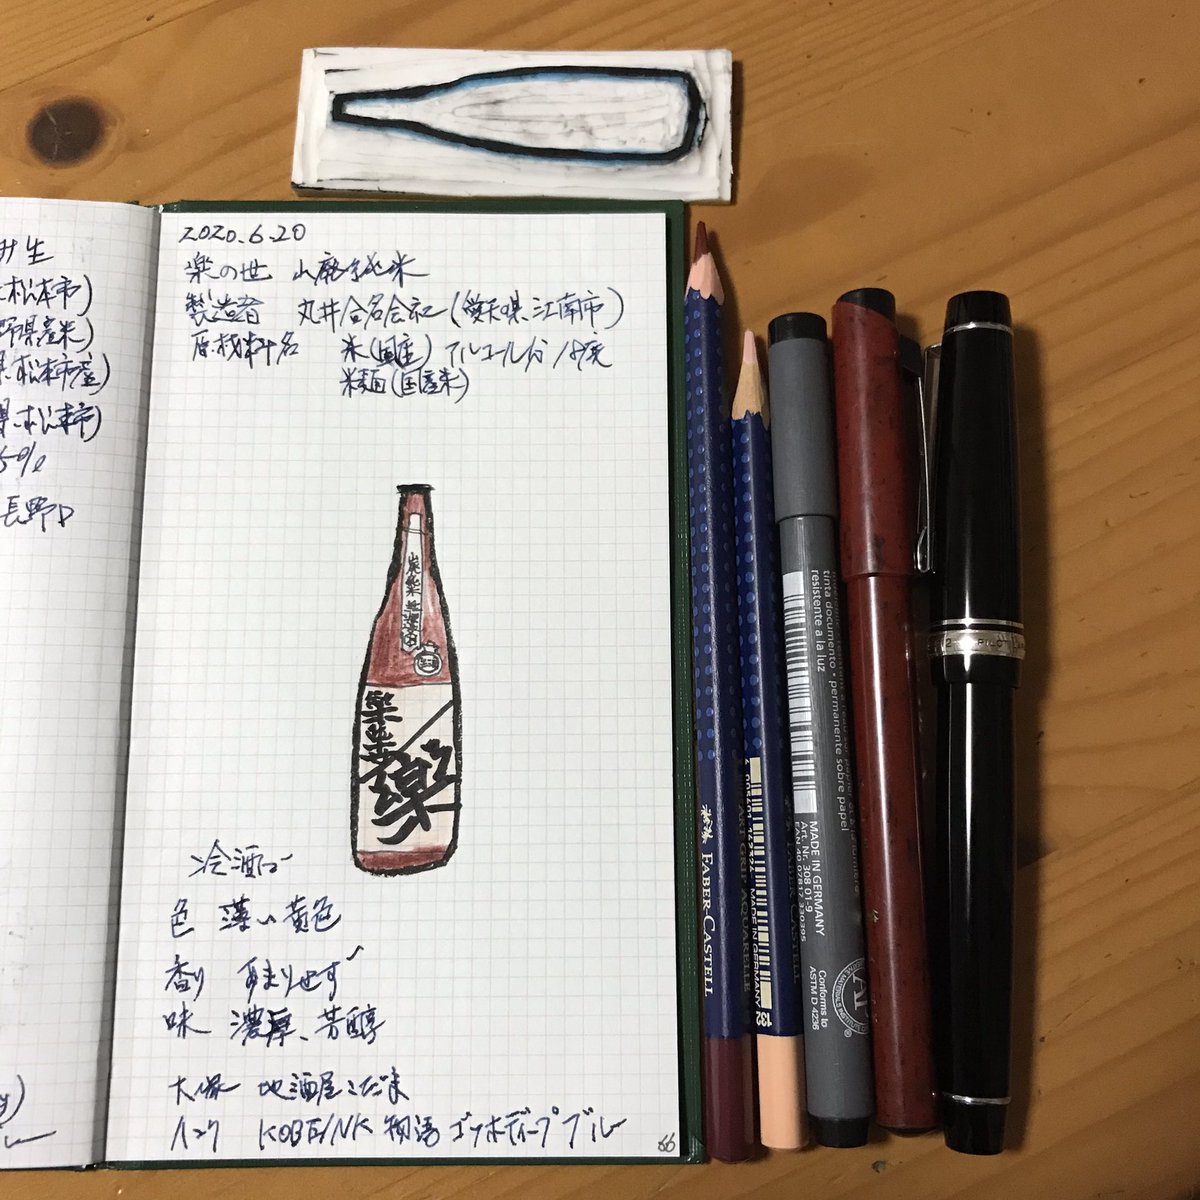 み生
松本市)
野県産米)
県松本市産)
県松本市)
5%
長野D
2020.6.20
楽の世 山廃純米
製造者 丸井合名会社(愛知県江南市)
原材料名 米(国産) アルコール分 18度
米麹(国産米)
楽
冷酒で
色 薄い黄色
香り あまりせず
味 濃厚、芳醇
大塚 地酒屋こだま
インク KOBE INK 物語 ゴッホディープブルー
66
FABER-CASTELL
ART GRIP AQUARELLE
MADE IN GERMANY
132
tinta documento • permanente sobre papel
resistente a la luz
MADE IN GERMANY
Art. Nr. 308 01-9
EAN 40 07817 330395
Conforms to
ASTM D 4236
AP
PILOT